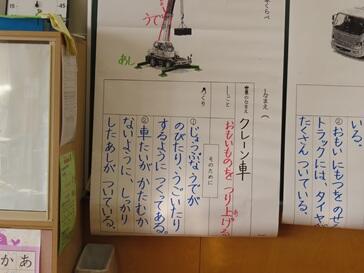 うで
あし
くらべ
なまえ
車のなまえ
クレーン車
しごと
おもいものをつり上げる
つくり
そのために
①じょうぶなうでが
のびたり、うごいたり
するようにつくってある。
②車たいが、かたむか
ないように、しっかり
したあしが、ついている。
いる。
②おもいにもつをのせ
トラックには、タイヤ
たくさんついている。
かあ